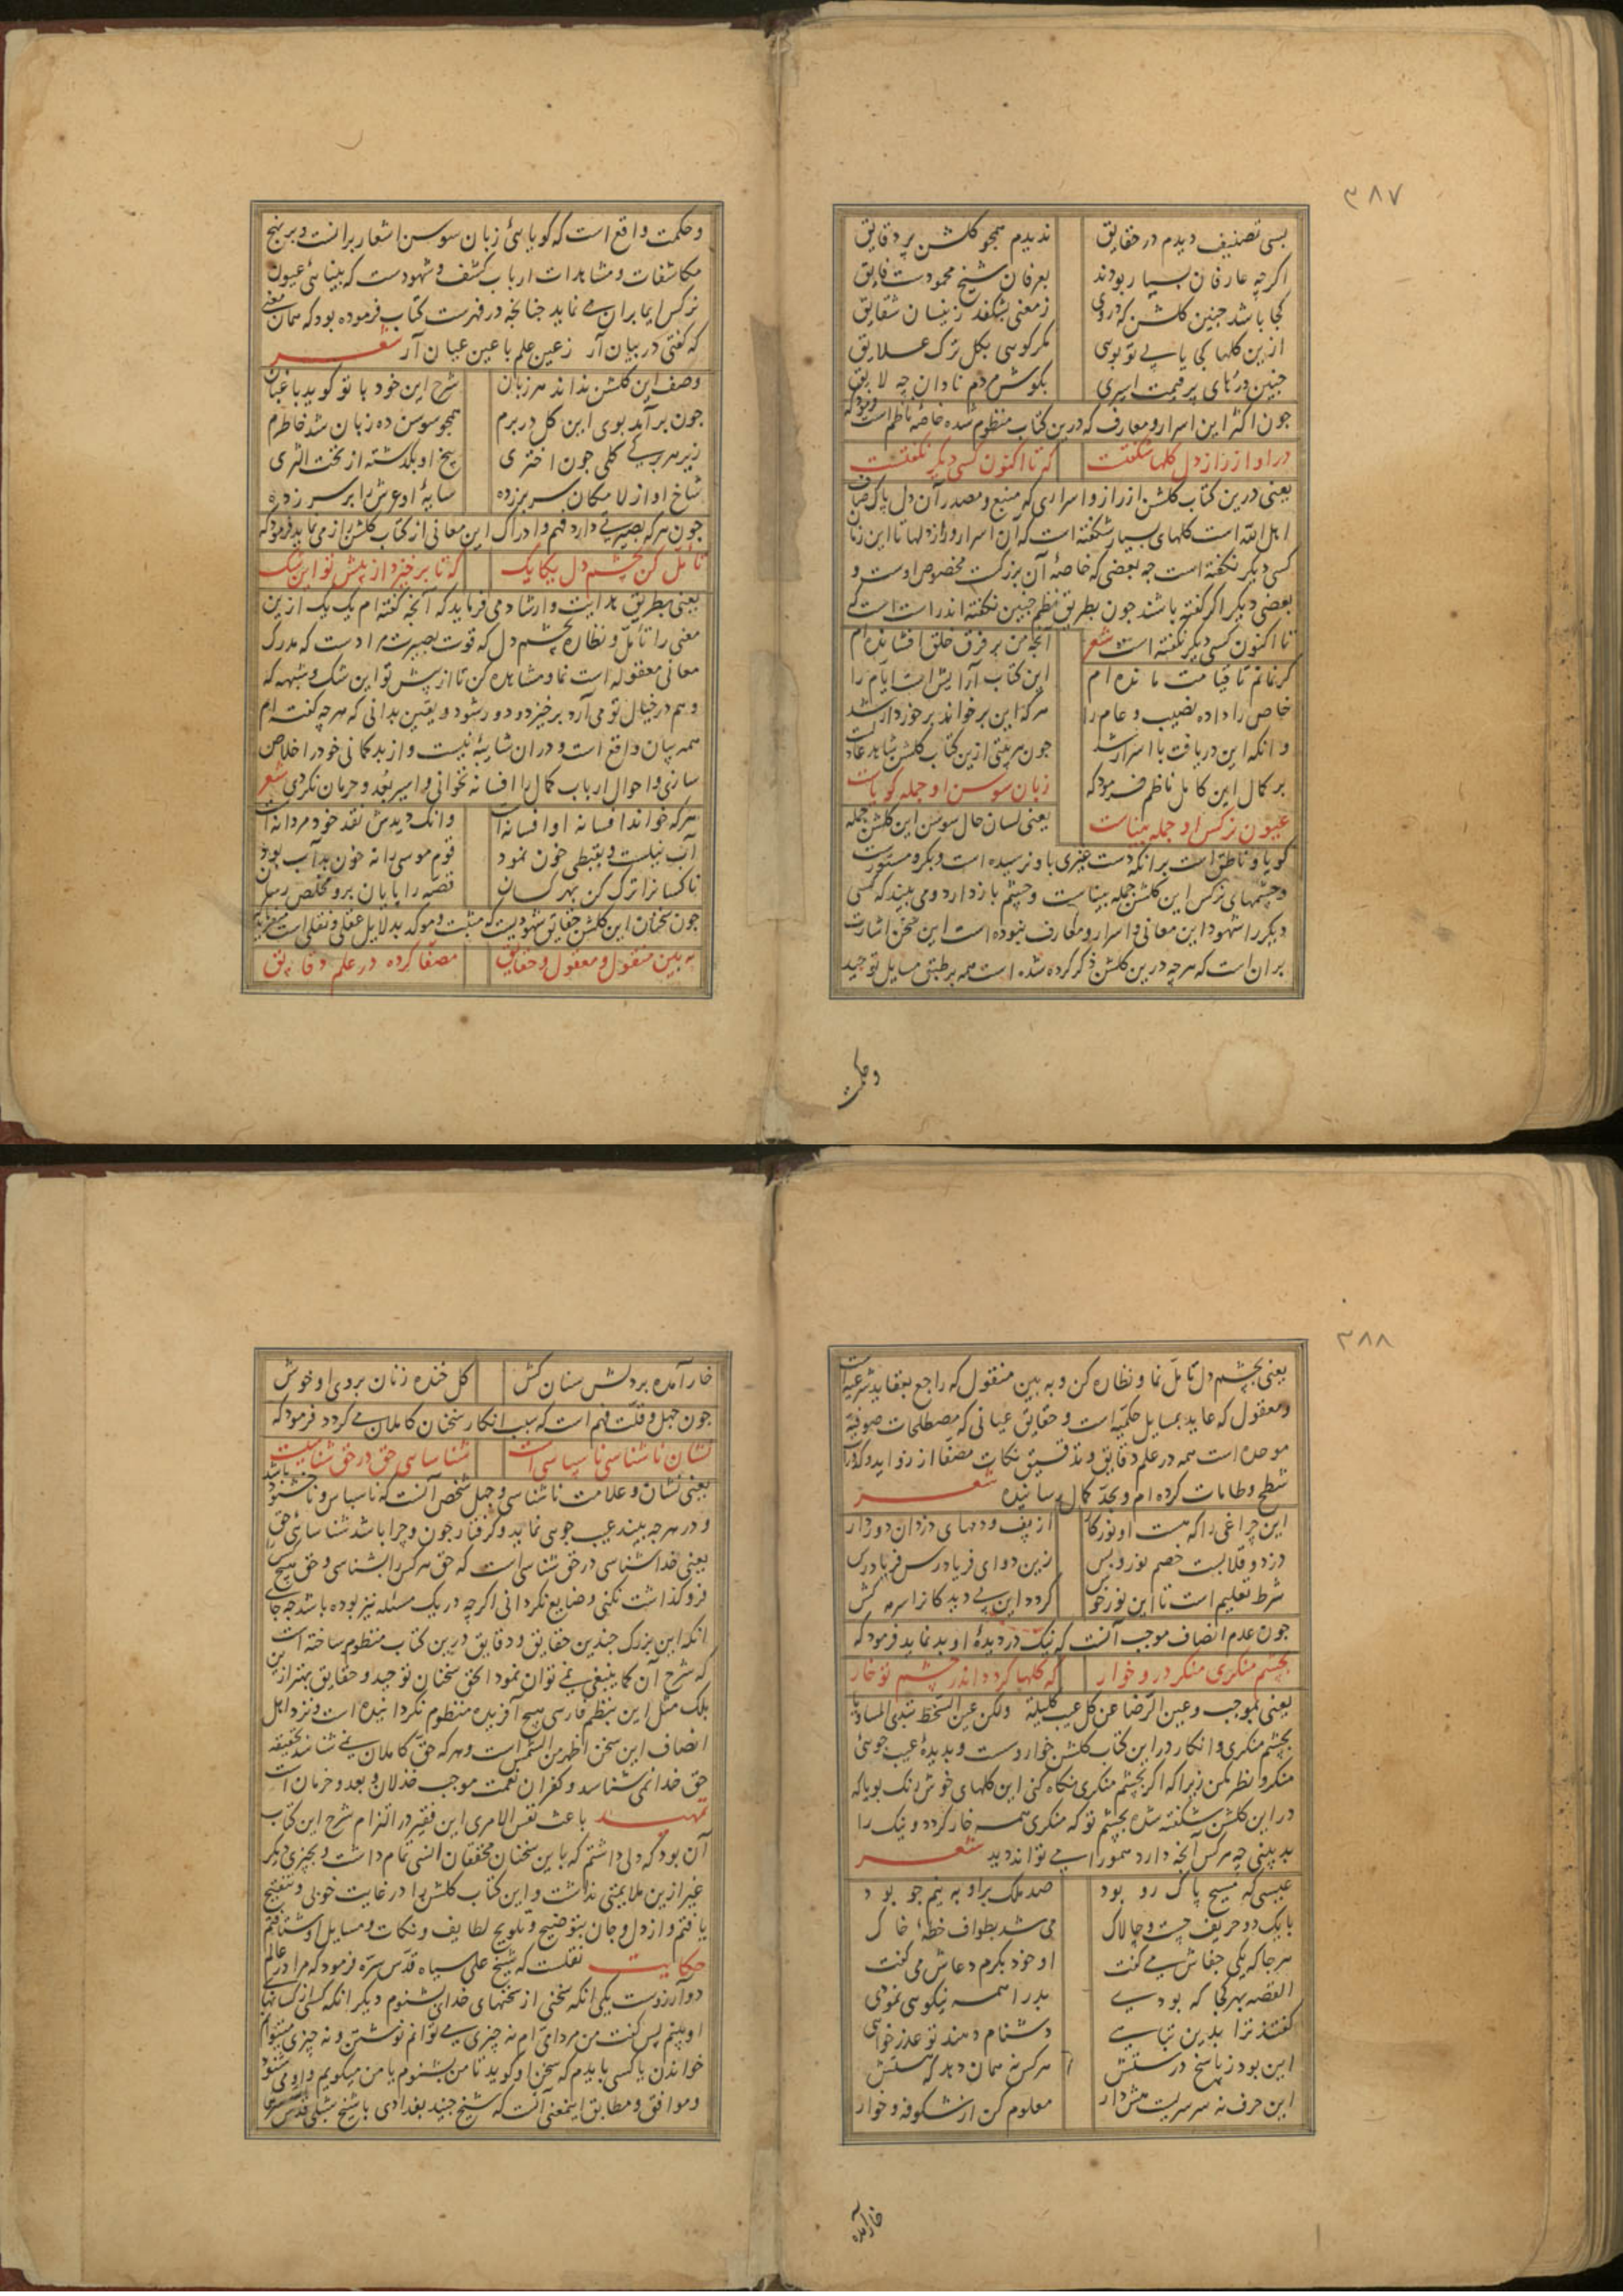 ۳۸۷
بسی تصنیف دیدم در حقایق ندیدم همچو گلشن پر دقایق
اگرچه عارفان بسیار بودند بعرفان شیخ محمودست فایق
کجا باشد چنین گلشن که دروی زمعنی بشکفد زینسان شقایق
ازین گلها کجا یابی تو بویی مگر گویی بکل ترک علایق
چنین درّهای پر قیمت اسیری بگوش مردم نادان چه لایق
چون اکثر این اسرار و معارف که درین کتاب منظوم شده خاصهٔ ناظم است فرمود که
در او از راز دل گلها شکفتست که تا اکنون کسی دیگر نگفتست
یعنی درین کتاب گلشن از راز و اسراری که منبع و مصدر آن دل پاک صاف
اهل الله است گلهای بسیار شکفته است که آن اسرار و راز دلها تا این زمان
کسی دیگر نگفته است چه بعضی که خاصهٔ آن بزرگست مخصوص اوست و
بعضی دیگر اگر گفته باشند چون بطریق نظم چنین نگفته اند راست است که
تا اکنون کسی دیگر نگفته است شعر آنچه من بر فرق خلق افشانده ام
گر نمانم تا قیامت مانده ام این کتاب آرایش است ایام را
خاص را داده نصیب و عام را هر که این بر خواند برخوردار شد
وانکه این دریافت با اسرار شد چون هر بیتی ازین کتاب گلشن شاهد عادلست
بر کمال این کامل ناظم فرمود که زبان سوسن او جمله گویاست
عیون نرگس او جمله بیناست یعنی لسان حال سوسن این گلشن جمله
گویا و ناطق است برانکه دست غیری باو نرسیده است و بکر و مستورست
و چشمهای نرگس این گلشن جمله بیناست و چشم باز دارد و می بیند که کسی
دیگر را شهود این معانی و اسرار و معارف نبوده است این سخن اشارت
بران است که هرچه درین گلشن ذکر کرده شده است همه بر طبق مسایل توحید
وحکمت
و حکمت واقع است که گویائی زبان سوسن اشعار برانست و بر نهج
مکاشفات و مشاهدات ارباب کشف و شهودست که بینائی عیون
نرگس ایما بران می نماید چنانچه در فهرست کتاب فرموده بود که همان معنی
که گفتی در بیان آر زعین علم با عین عیان آر شعر
وصف این گلشن نداند هر زبان شرح این خود با تو گوید باغبان
چون برآید بوی این گل در برم همچو سوسن ده زبان شد خاطرم
زیر هر برگی گلی چون اختری بیخ او بگذشته از تحت الثری
شاخ او از لامکان سر بر زده سایهٔ او عرش را بر سر زده
چون هر که بصیرتی دارد فهم و ادراک این معانی از کتاب گلشن راز می نماید فرمود که
تأمل کن بچشم دل یکایک که تا برخیزد از پیش تو این شک
یعنی بطریق هدایت و ارشاد می فرماید که آنچه گفته ام یک یک ازین
معنی را تأمل و نظاره بچشم دل که قوت بصیرت مرادست که مدرک
معانی معقوله است نما و مشاهده کن تا از پیش تو این شک و شبهه که
وهم در خیال تو می آرد برخیزد و دور شود و یقین بدانی که هرچه گفته ام
همه بیان واقع است و دران شایبهٔ نیست و از بدگمانی خود را خلاص
سازی و احوال ارباب کمال را افسانه نخوانی و اسیر بُعد و حرمان نگردی شعر
هر که خواند افسانه او افسانه است وانک دیدش نقد خود مردانه است
آب نیلست و بقبطی خون نمود قوم موسی را نه خون بد آب بود
ناکسانرا ترک کن بهر کسان قصه را پایان برو مخلص رسان
چون سخنان این گلشن حقایق شهودیست که مثبت و موکد بدلایل عقلی و نقلی است میفرماید که
به بین منقول و معقول و حقایق مصفّا کرده در علم دقایق
۳۸۸
یعنی بچشم دل تامل نما و نظاره کن و به بین منقول که راجع بعقاید شرعیه است
و معقول که عاید بمسایل حکمیه است و حقایق عیانی که مصطلحات صوفیهٔ
موحده است همه در علم دقایق و تدقیق نکات مصفا از زواید و کدورات
شطح و طامات کرده ام و بحدّ کمال رسانیده شعر
این چراغی را که هست او نور کار از پف و دمهای دزدان دور دار
دزد و قلابست خصم نور و بس زین دو ای فریادرس فریاد رس
شرط تعلیم است تا این نورخوش گردد این بی دیدگانرا سرمه کش
چون عدم انصاف موجب آنست که نیک در دیدهٔ او بد نماید فرمود که
بچشم منکری منگر درو خوار که گلها گردد اندر چشم تو خار
یعنی بموجب وعین الرضا عن کل عیب کلیلة ولکن عین السخط تبدی المساویا
بچشم منکری و انکار در این کتاب گلشن خوارو سست و بدیدهٔ عیب جویی
منگر و نظر مکن زیرا که اگر بچشم منکری نگاه کنی این گلهای خوش رنگ بویا که
در این گلشن شکفته شده بچشم تو که منکری همه خار گردد و نیک را
بد بینی چه هرکس آنچه دارد همورا می تواند دید شعر
عیسی که مسیح پاک رو بود صد ملک براو به نیم جو بود
با یک دو حریف چست و چالاک می شد بطواف خطهٔ خاک
هرجا که یکی جفاش می گفت او خود بکرم دعاش می گفت
القصه بهر کجا که بودی بد را همه نیکویی نمودی
گفتند ترا بدین تباهی دشنام دهند تو عذر خواهی
این بود ز پاسخ درستش هرکس نه همان دهد که هستش
این حرف نه سرسریست هش دار معلوم کن از شکوفه و خار
خارآمده
خار آمده بردلش سنان کش گل خنده زنان بروی او خوش
چون جهل و قلت فهم است که سبب انکار سخنان کاملان می گردد فرمود که
نشان ناشناسی ناسپاسی است شناسایی حق در حق شناسیست
یعنی نشان و علامت ناشناسی و جهل شخص آنست که ناسپاس و ناخشنود باشد
و در هرچه بیند عیب جویی نماید و گرفتار چون و چرا باشد شناسایی حق
یعنی خداشناسی در حق شناسی است که حق هر کس را بشناسی و حق هیچ کس را
فروگذاشت نکنی و ضایع نگردانی اگرچه در یک مسئله نیز بوده باشد چه جای
انکه این بزرگ چندین حقایق و دقایق درین کتاب منظوم ساخته است
که شرح آن کما ینبغی نمی توان نمود الحق سخنان توحید و حقایق بهتر ازین
بلک مثل این بنظم فارسی هیچ آفریده منظوم نگردانیده است و نزد اهل
انصاف این سخن اظهر من الشمس است و هر که حق کاملان نمی شناسد بحقیقه
حق خدا نمی شناسد و کفران نعمت موجب خذلان و بعد و حرمان است
تمهید باعث نفس الامری این فقیر در التزام شرح این کتاب
آن بود که دلی داشتم که با این سخنان محققان انسی تمام داشت و بچیزی دیگر
غیر ازین ملایمتی نداشت و این کتاب گلشن را در غایت خوبی و تنقیح
یافتم و از دل و جان بتوضیح و تلویح لطایف و نکات و مسایل او شتافتم
حکایت نقلست که شیخ علی سیاه قدس سره فرمود که مرا در عالم
دو آرزوست یکی انکه سخنی از سخنهای خدای بشنوم دیگر انکه کسی از کسانهای
او بینم پس گفت من مردامّی ام نه چیزی می توانم نوشتن و نه چیزی میتوانم
خواندن یا کسی بایدم که سخن او گوید تا من بشنوم یا من میگویم و او می شنود
و موافق و مطابق اینمعنی آنست که شیخ جنید بغدادی با شیخ شبلی قدس سرهما